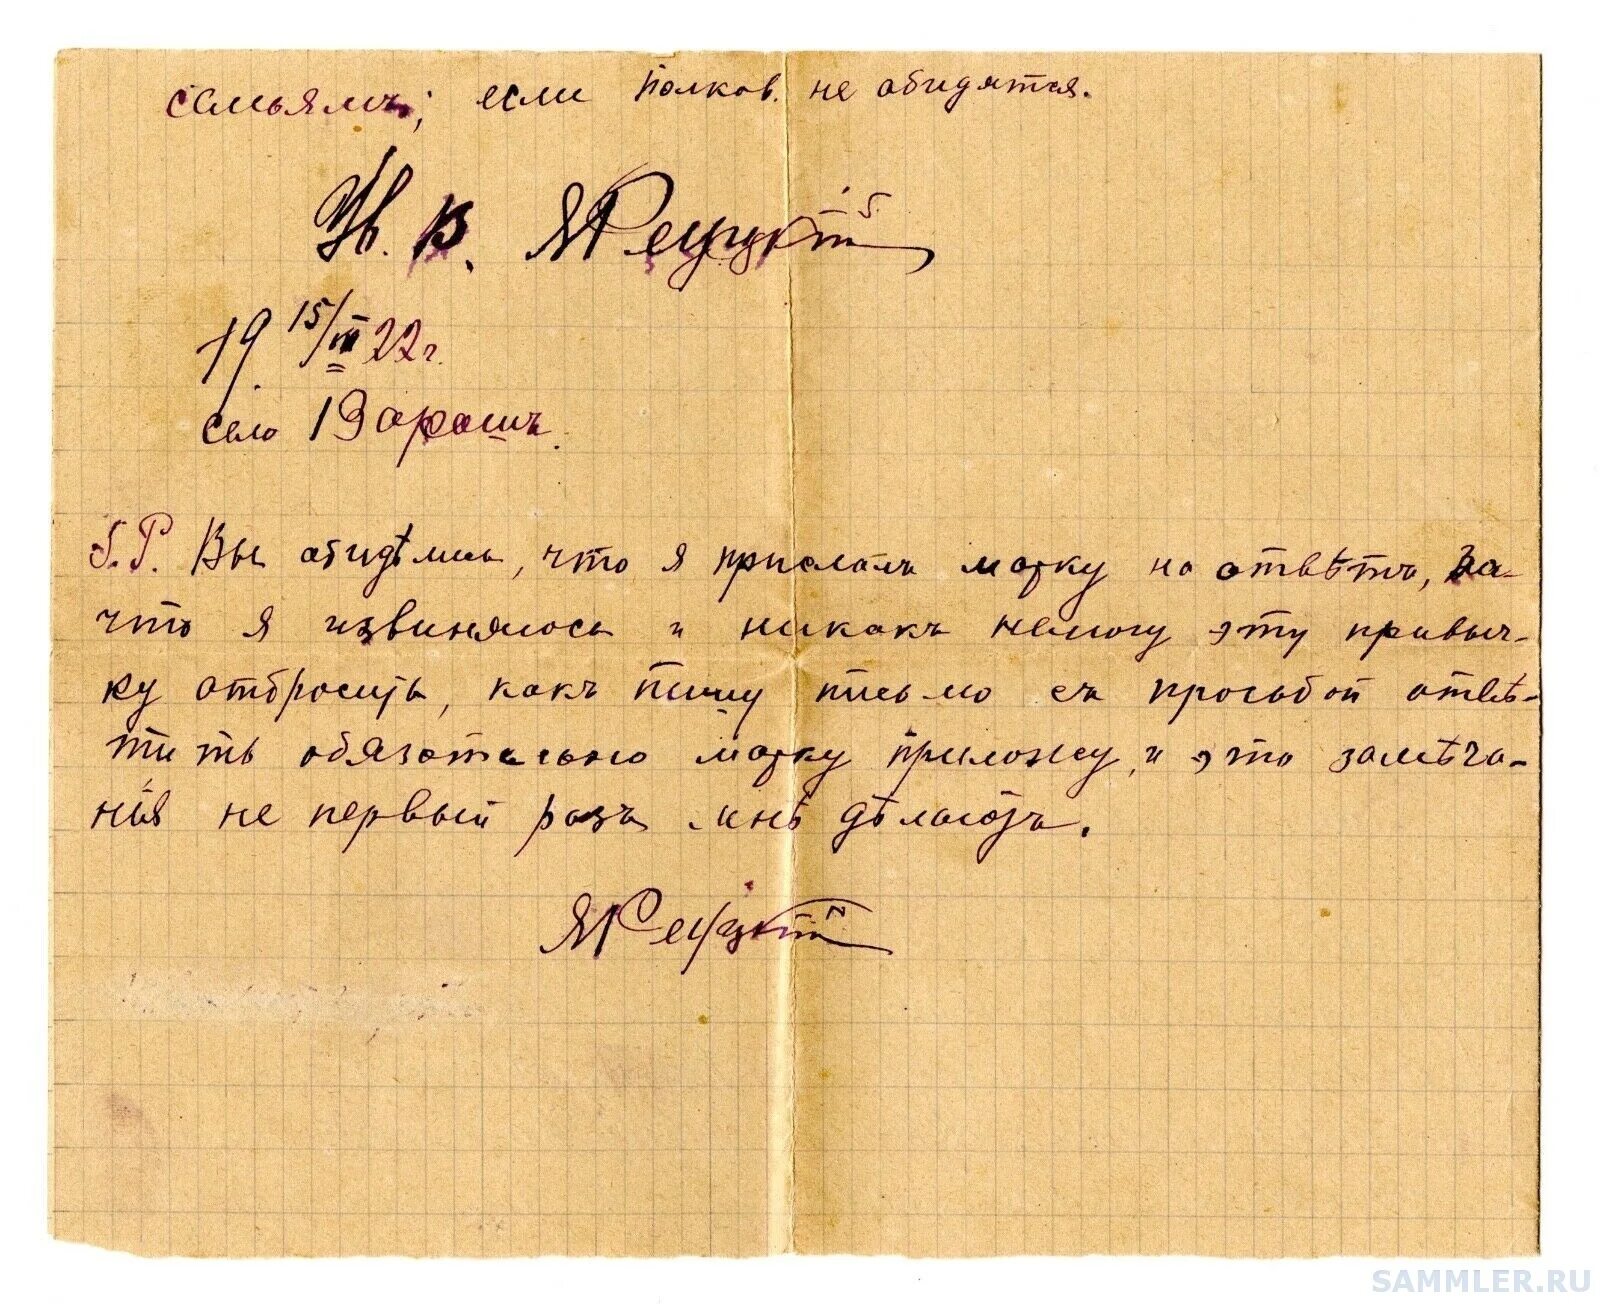 семьямъ; если полков. не абидятся.
Ув. В. ЯРецкій
19 15/III 22 г.
село Варашъ.
S.P. Вы абидѣлись, что я прислалъ марку на отвѣтъ, за-
что я извиняюсь и никакъ немогу эту привыч-
ку отбросить, какъ пишу письмо съ просьбой отвѣ-
тить обязательно марку приложу, и это замѣча-
нія не первый разъ мнѣ дѣлаютъ.
ЯРецкій
SAMMLER.RU